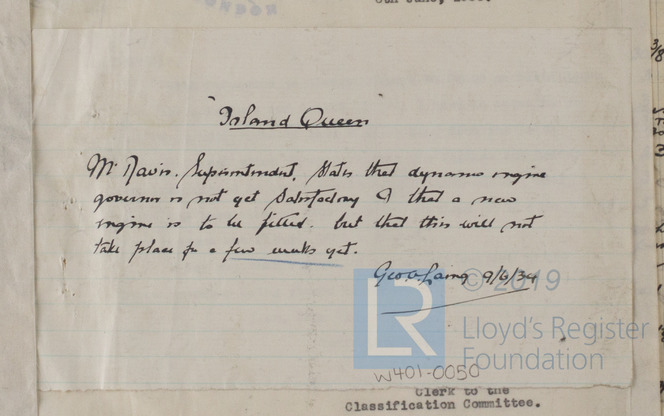 8th June,
"Island Queen"
Mr Davis. Superintendent, states that dynamo engine
governor is not yet satisfactory & that a new
engine is to be fitted. but that this will not
take place for a few weeks yet.
Geo. Laing 9/6/34
© 2019
LR
Lloyd's Register
Foundation
W401-0050
Clerk to the
Classification Committee.